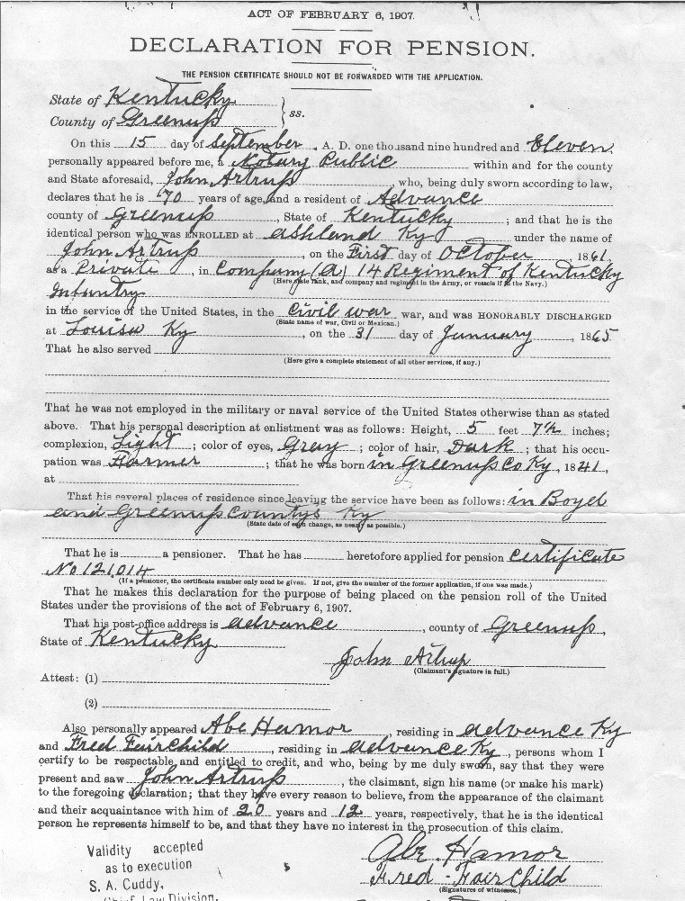 ACT OF FEBRUARY 6, 1907.
DECLARATION FOR PENSION.
THE PENSION CERTIFICATE SHOULD NOT BE FORWARDED WITH THE APPLICATION.
State of Kentucky
County of Greenup } ss.
On this 15 day of September, A. D. one thousand nine hundred and Eleven
personally appeared before me, a Notary Public within and for the county
and State aforesaid, John Artrup, who, being duly sworn according to law,
declares that he is 70 years of age, and a resident of Advance
county of Greenup, State of Kentucky; and that he is the
identical person who was ENROLLED at ashland Ky under the name of
John Artrup, on the First day of October 1861,
as a Private, in Company (A) 14 Regiment of Kentucky
(Here state rank, and company and regiment in the Army, or vessels if in the Navy.)
Infantry
in the service of the United States, in the Civil war war, and was HONORABLY DISCHARGED
(State name of war, Civil or Mexican.)
at Louisa Ky, on the 31 day of January, 1865
That he also served
(Here give a complete statement of all other services, if any.)
That he was not employed in the military or naval service of the United States otherwise than as stated
above. That his personal description at enlistment was as follows: Height, 5 feet 7½ inches;
complexion, Light; color of eyes, Gray; color of hair, Dark; that his occu-
pation was Farmer; that he was born in Greenup Co Ky, 1841,
at
That his several places of residence since leaving the service have been as follows: in Boyd
and Greenup Countys Ky
(State date of each change, as nearly as possible.)
That he is a pensioner. That he has heretofore applied for pension Certificate
No 121,014
(If a pensioner, the certificate number only need be given. If not, give the number of the former application, if one was made.)
That he makes this declaration for the purpose of being placed on the pension roll of the United
States under the provisions of the act of February 6, 1907.
That his post-office address is advance, county of Greenup,
State of Kentucky
John Artrup
(Claimant's signature in full.)
Attest: (1)
(2)
Also personally appeared Abe Hamor, residing in advance Ky
and Fred Fairchild, residing in advance Ky, persons whom I
certify to be respectable and entitled to credit, and who, being by me duly sworn, say that they were
present and saw John Artrup, the claimant, sign his name (or make his mark)
to the foregoing declaration; that they have every reason to believe, from the appearance of the claimant
and their acquaintance with him of 20 years and 12 years, respectively, that he is the identical
person he represents himself to be, and that they have no interest in the prosecution of this claim.
Abe Hamor
Fred-FairChild
(Signatures of witnesses.)
Validity accepted
as to execution
S. A. Cuddy,
Chief Law Division.